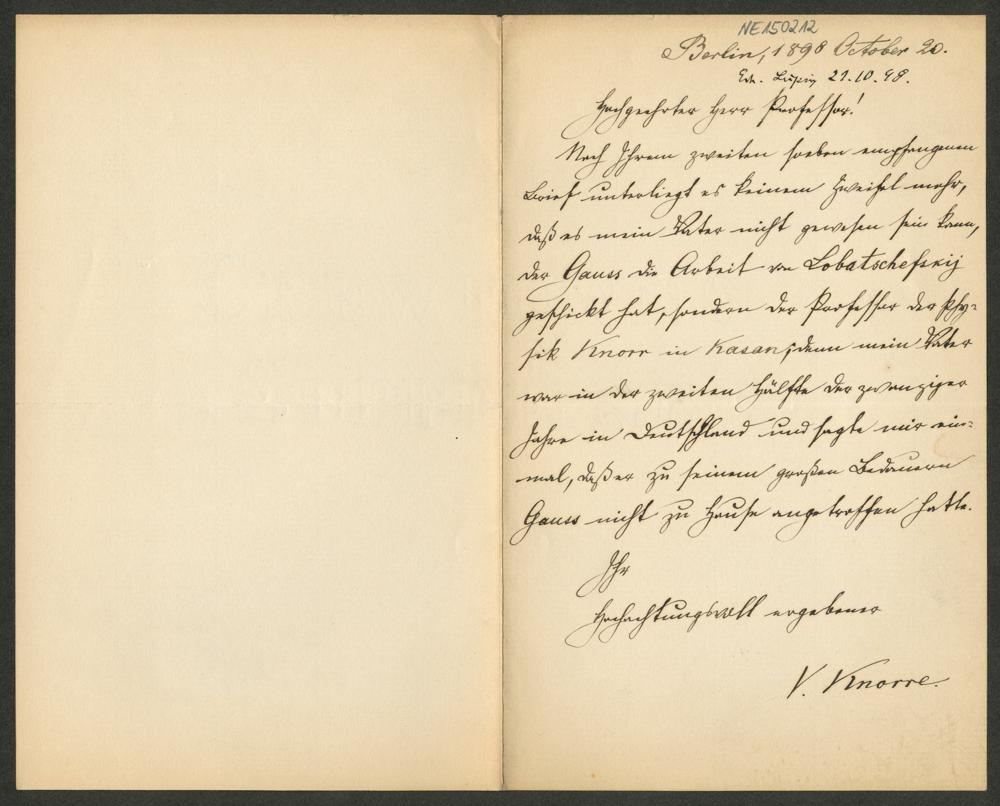 NE150212
Berlin, 1898 October 20.
Leipzig 21.10.98.
Hochgeehrter Herr Professor!
Nach Ihrem zweiten soeben empfangenen
Brief unterliegt es keinem Zweifel mehr,
daß es mein Vater nicht gewesen sein kann,
der Gauss die Arbeit von Lobatschefskij
geschickt hat, sondern der Professor der Phy-
sik Knorr in Kasan; denn mein Vater
war in der zweiten Hälfte der zwanziger
Jahre in Deutschland und sagte mir ein-
mal, daß er zu seinem großen Bedauern
Gauss nicht zu Hause angetroffen hatte.
Ihr
Hochachtungsvoll ergebener
V. Knorre.